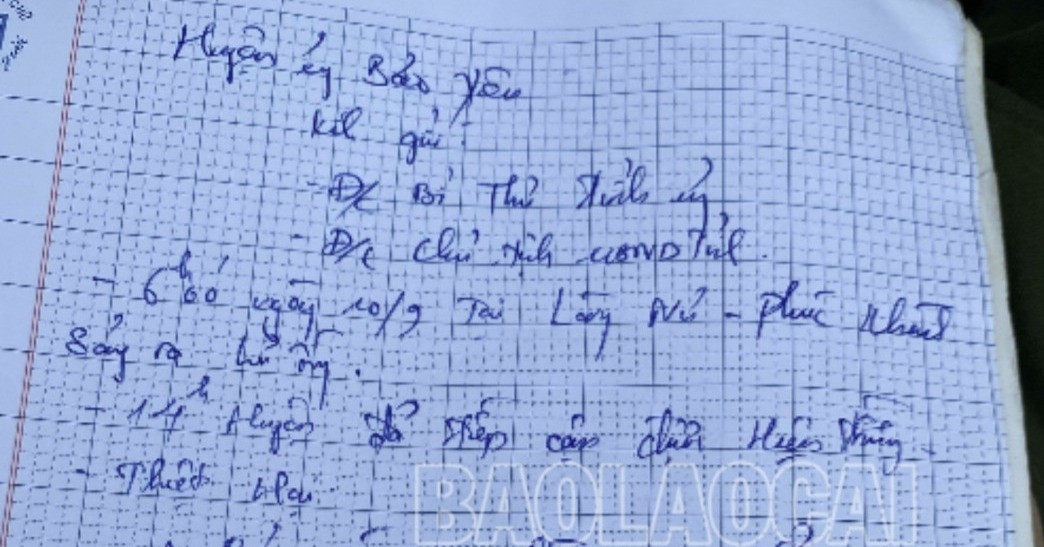 Huyện ủy Bảo Yên
Kính gửi:
- Đ/c Bí Thư Tỉnh ủy
- Đ/c Chủ tịch UBND Tỉnh.
- 6h00 ngày 10/9 Tại Làng Nủ - Phúc Khánh
Sảy ra lũ ống.
- 14h Huyện đã tiếp cận được Hiện trường.
- Thiệt Hại
BAOLAOCAI